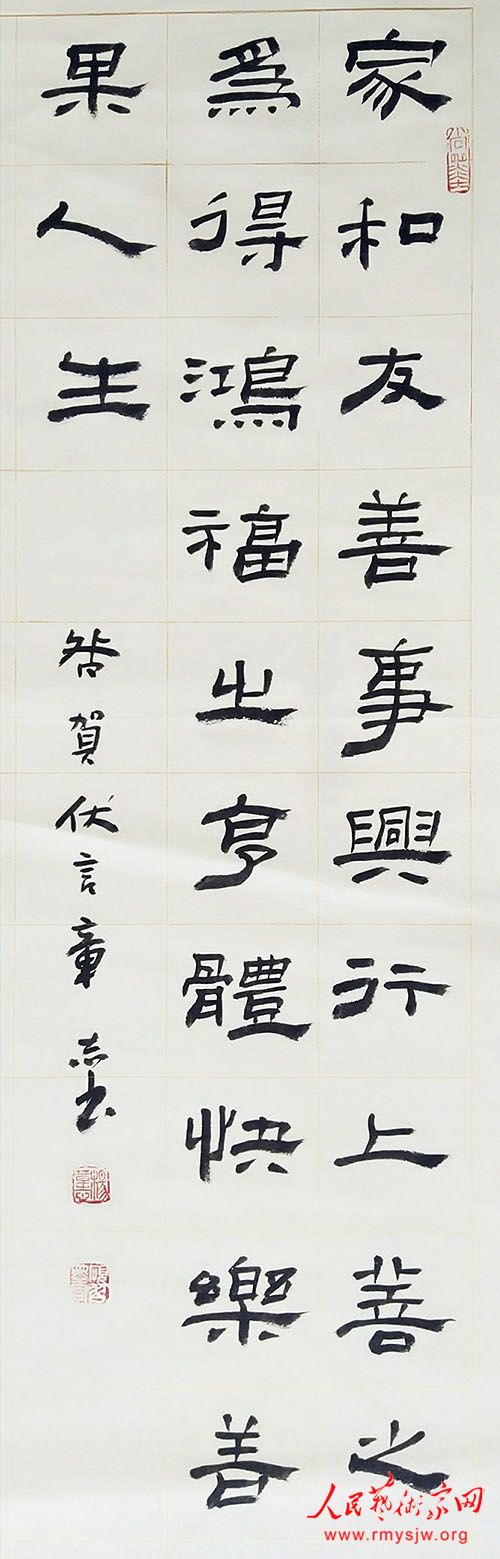 家和友善事興行上善之
爲得鴻福之亨體快樂善
果人生
賀伏言章志書
人民藝術家网
www.rmysjw.org